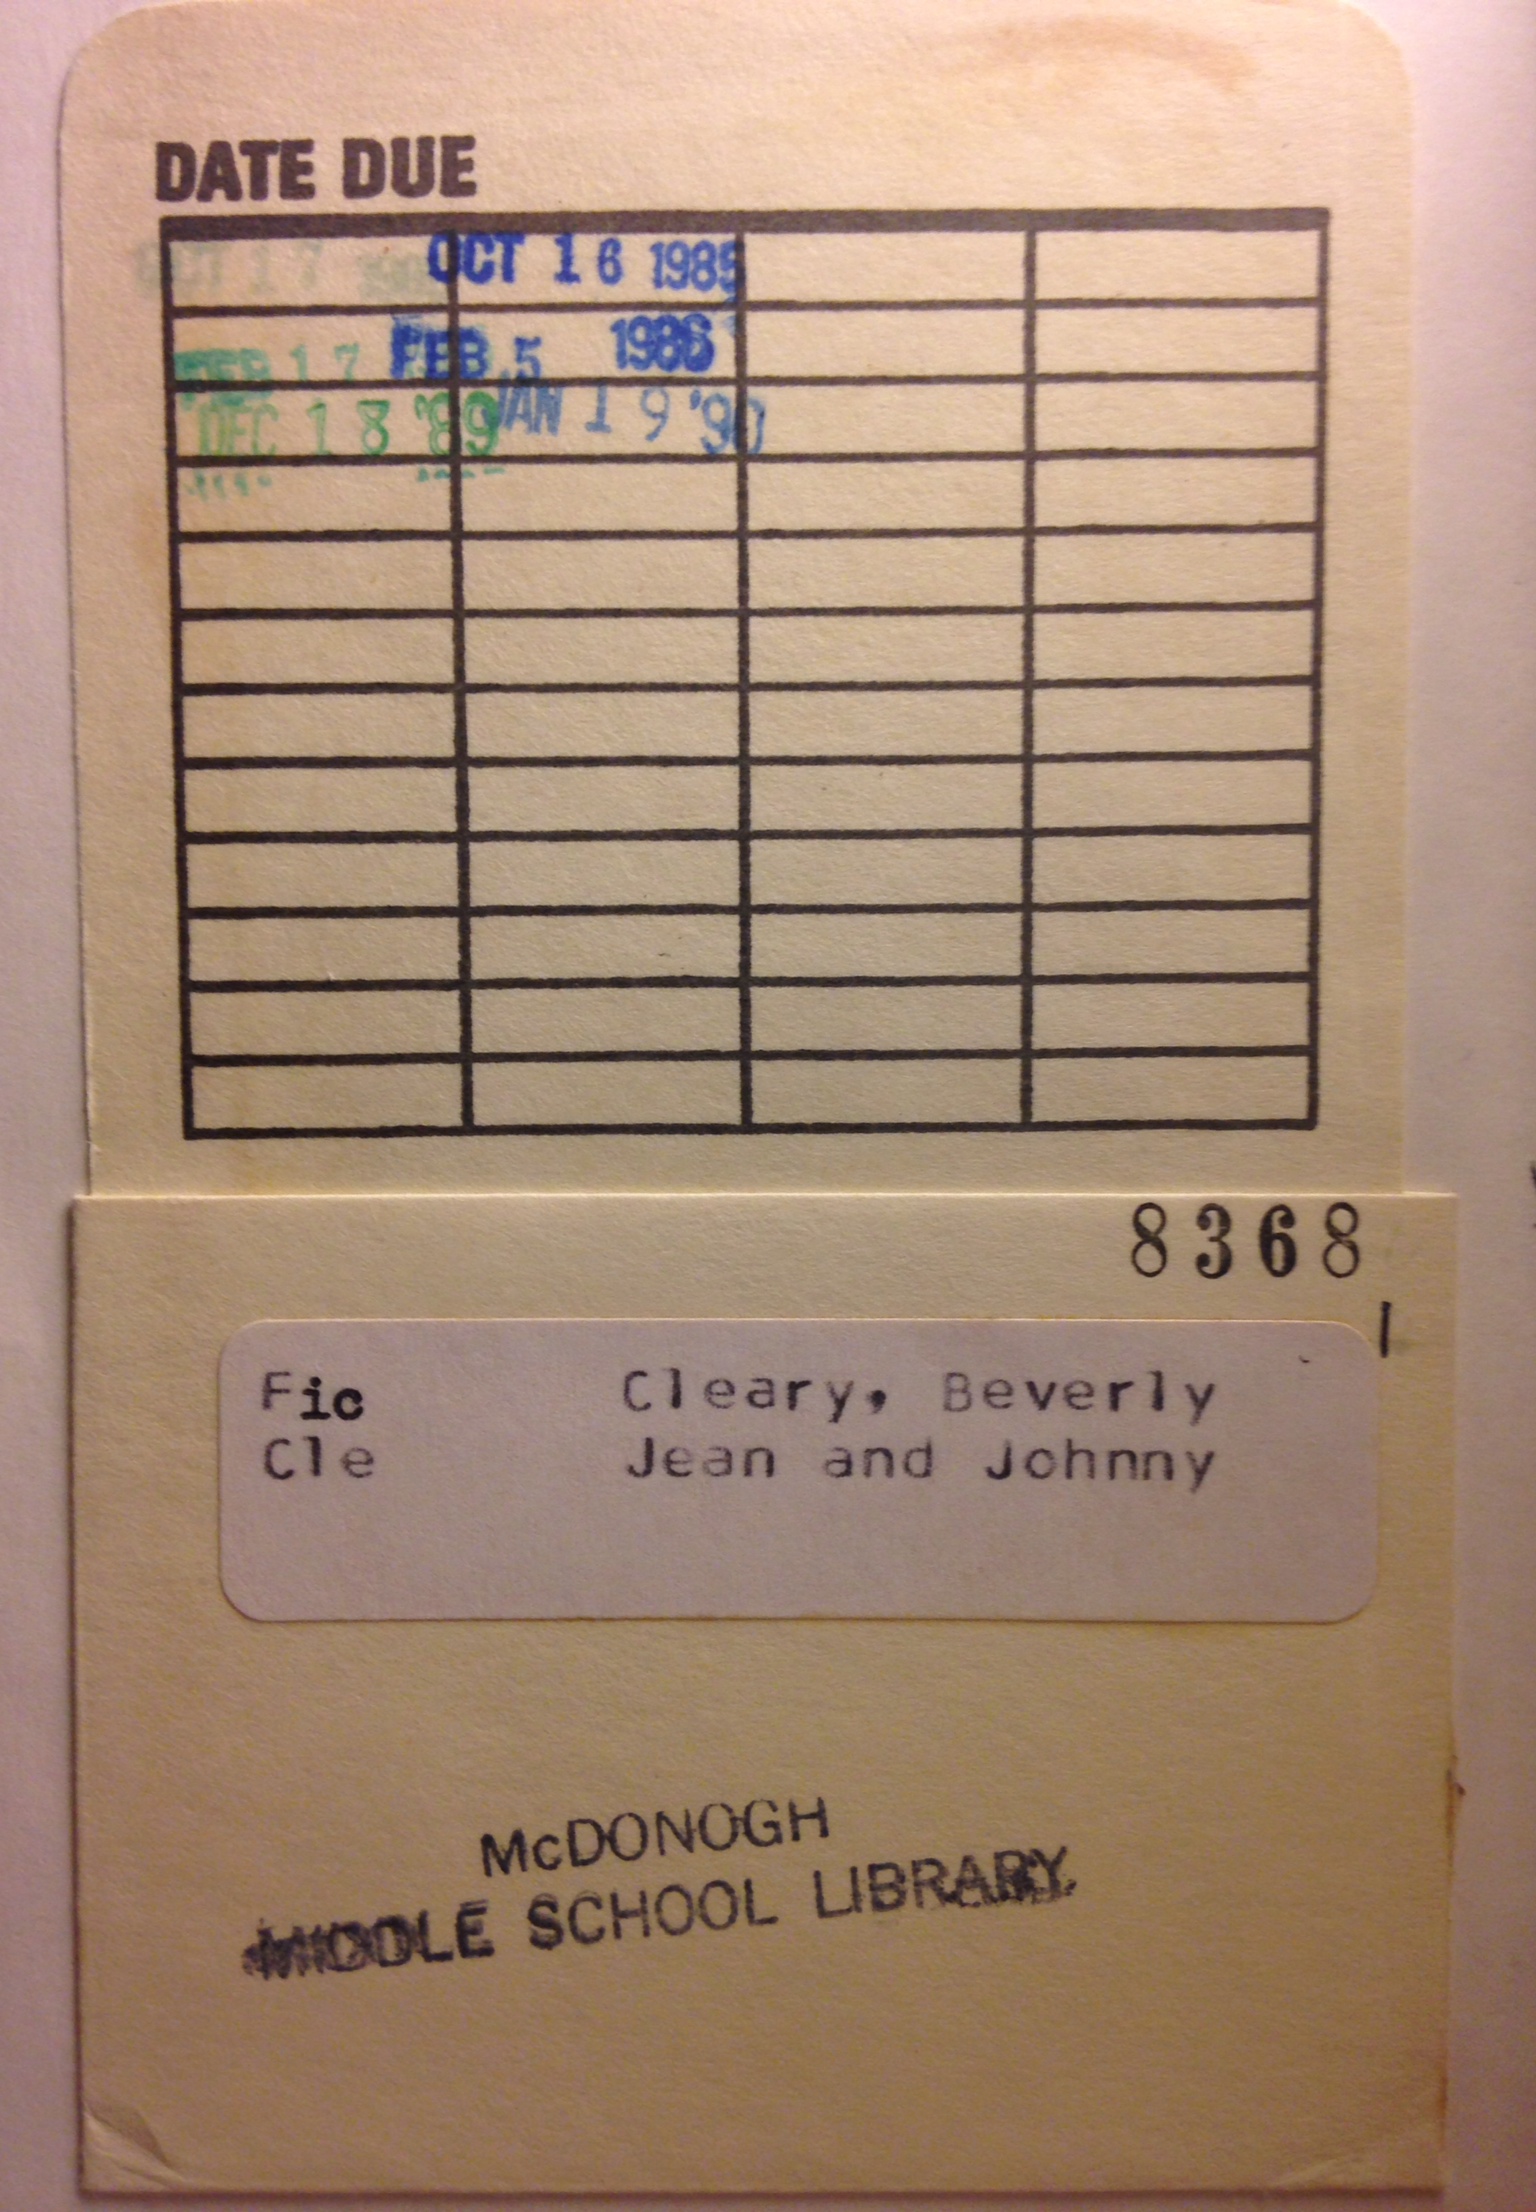 DATE DUE
OCT 17 OCT 16 1985
FEB 17 FEB 5 1986
DEC 18 '89 JAN 19 '90
8368
1
Fic Cleary, Beverly
Cle Jean and Johnny
McDONOGH
MIDDLE SCHOOL LIBRARY